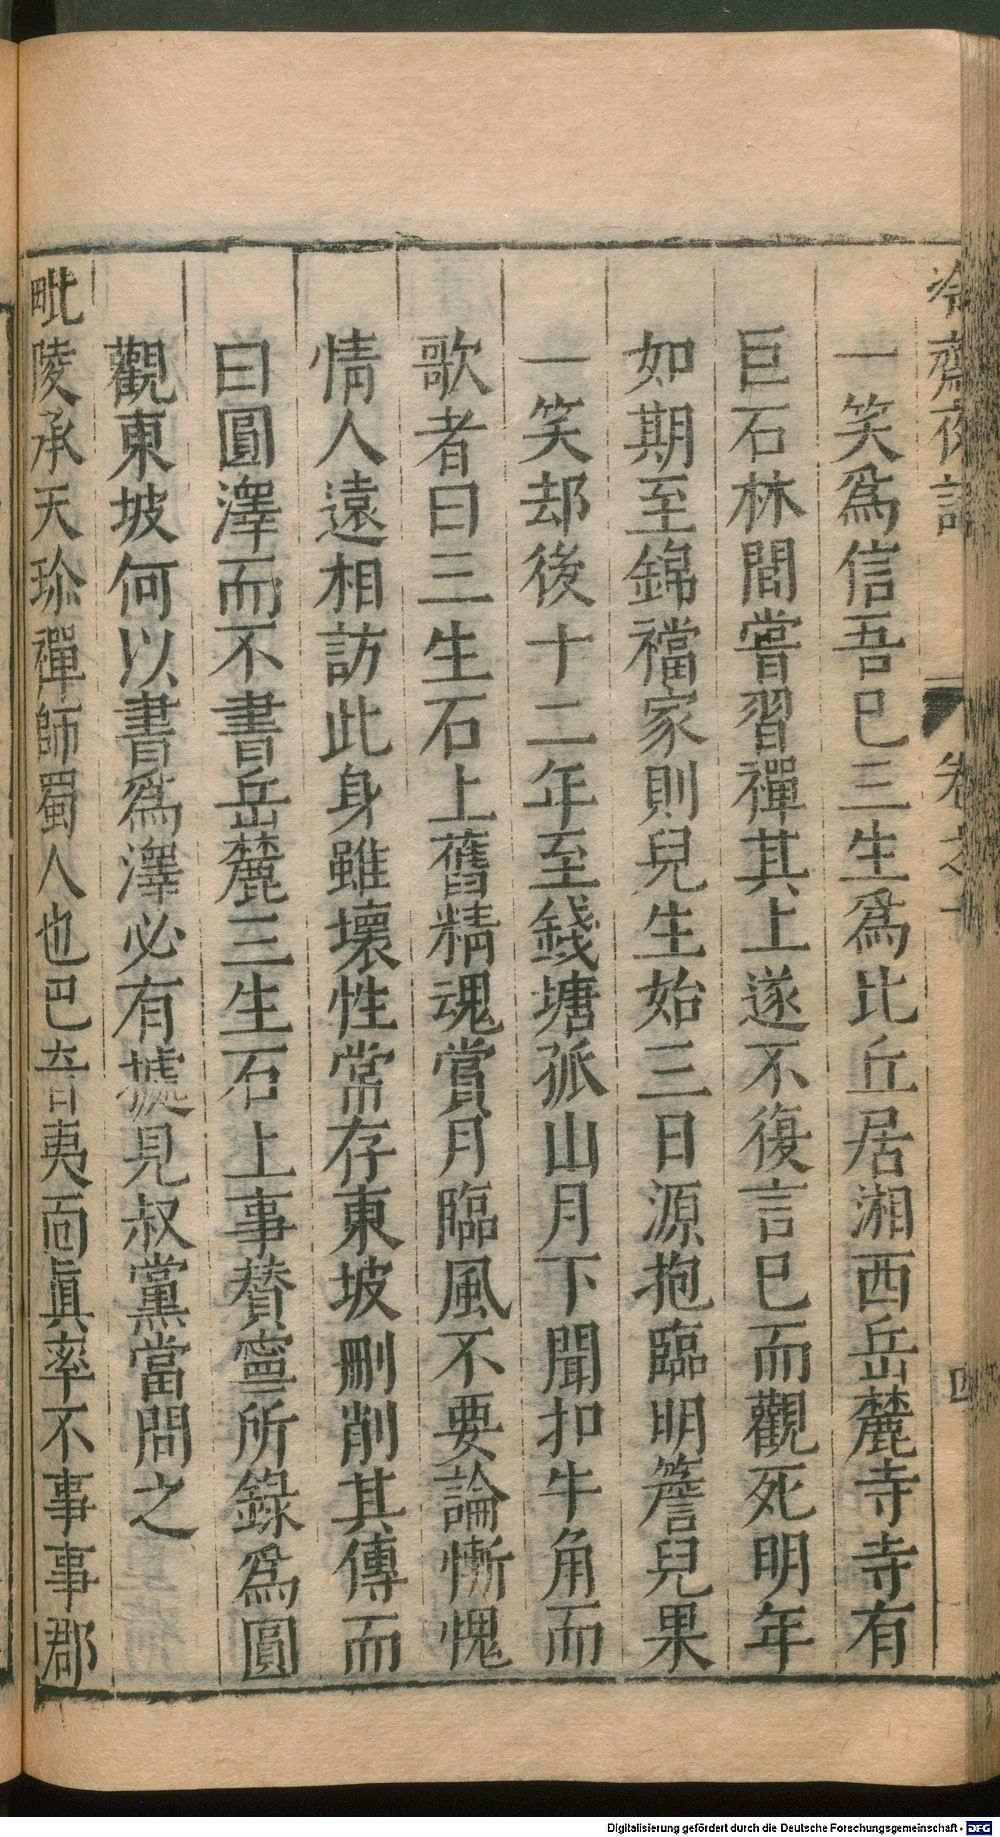 冷齋夜話 卷之十 四
一笑爲信吾已三生爲比丘居湘西岳麓寺寺有
巨石林間嘗習禪其上遂不復言已而觀死明年
如期至錦襠家則兒生始三日源抱臨明簷兒果
一笑却後十二年至錢塘孤山月下聞扣牛角而
歌者曰三生石上舊精魂賞月臨風不要論慚愧
情人遠相訪此身雖壞性常存東坡刪削其傳而
曰圓澤而不書岳麓三生石上事贊寧所錄爲圓
觀東坡何以書爲澤必有據見叔黨當問之
毗陵承天珍禪師蜀人也巴音夷面眞率不事事郡
Digitalisierung gefördert durch die Deutsche Forschungsgemeinschaft - DFG